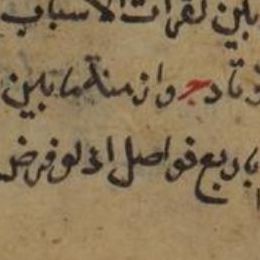 بلين لقرات الاسباب
وتاد ج وازمنة ما بلين
باربع فواصل اذ لو فرض